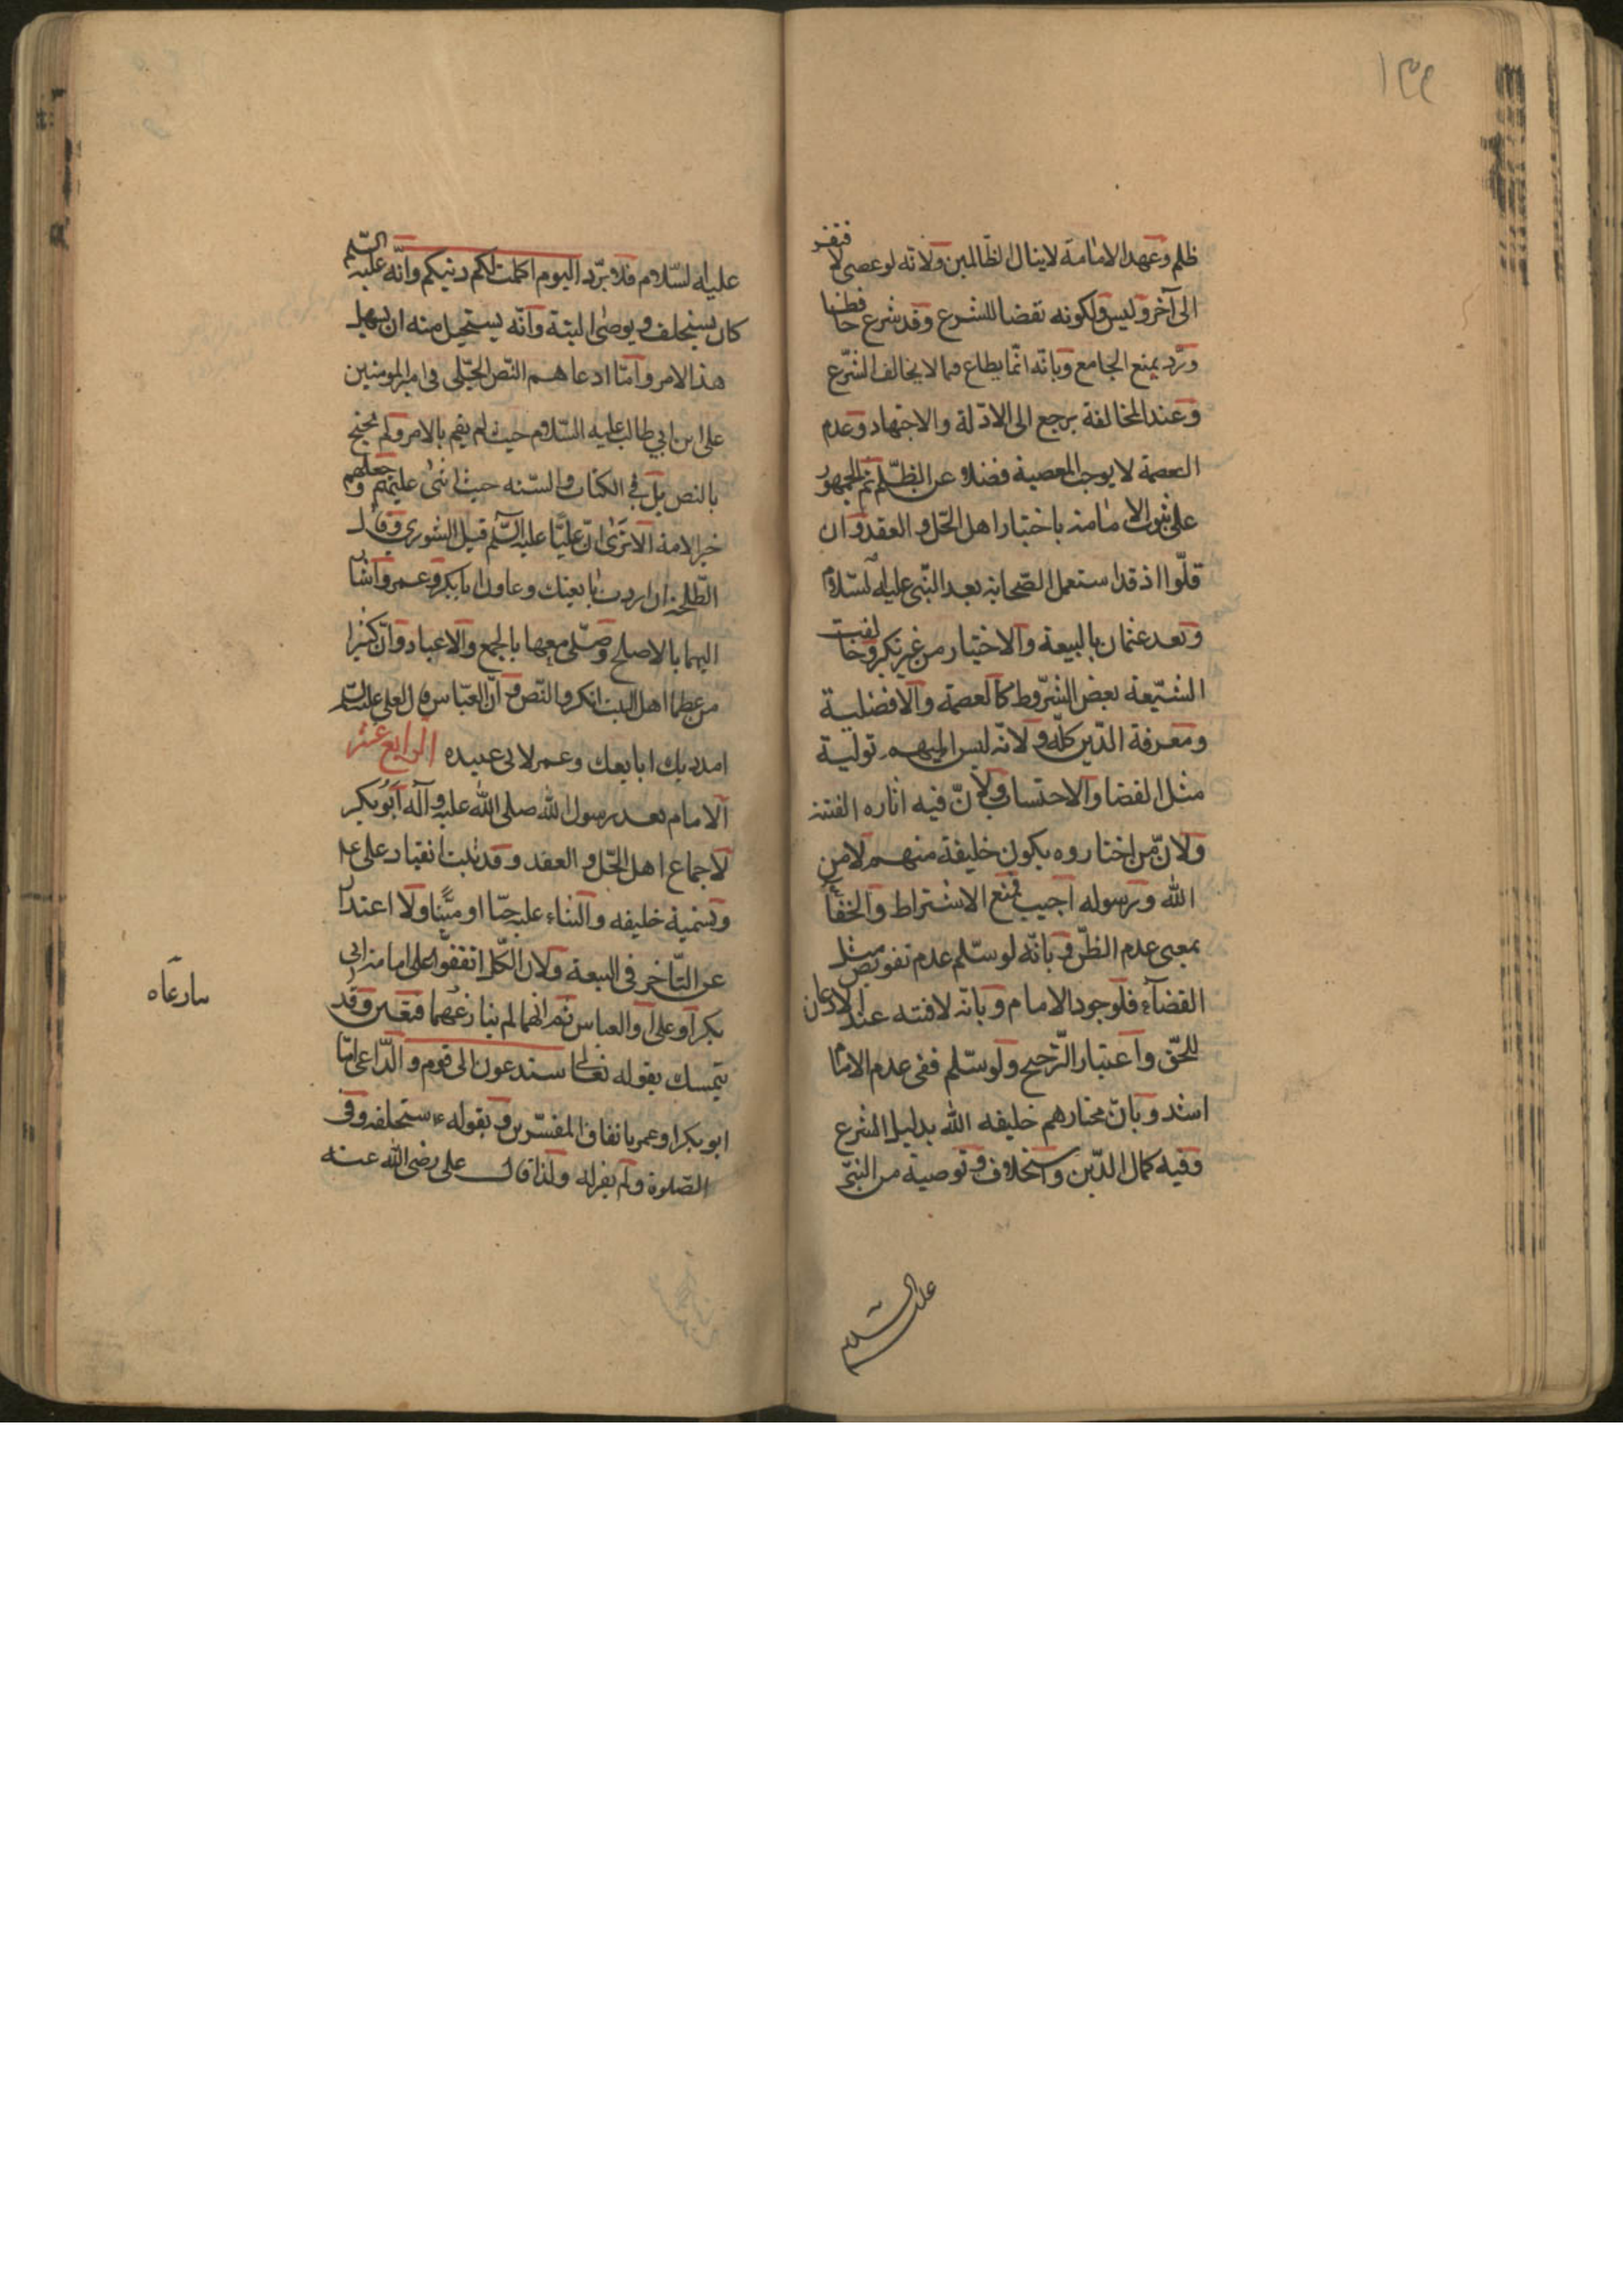 ١٣٩
ظلم وعهد الامامة لا ينال الظالمين ولانه لو عصى لافتقر
الى آخر وليس ولكونه نقضا للشرع وقد شرع حافظا
وترد بمنع الجامع وبانه انما يطاع فيما لا يخالف الشرع
وعند المخالفة يرجع الى الادلة والاجتهاد وعدم
العصمة لا يوجب المعصية فضلا عن الظلم ثم الجمهور
على ثبوت الامامة باختيار اهل الحل والعقد وان
قلّوا اذ قد استعمل الصحابة بعد النبى عليه السلام
وبعد عثمان بالبيعة والاختيار من غير نكير وخالفت
الشيعة بعض الشروط كالعصمة والافضلية
ومعرفة الدين كله ولانه ليس اليهم تولية
مثل القضا والاحتساب ولان فيه اثاره الفتنة
ولان من اختاروه يكون خليفة منهم لا من
الله ورسوله اجيب بمنع الاشتراط والخفاء
بمعنى عدم الظن وبانه لو سلم عدم تفويض مثل
القضاء فلوجود الامام وبانه لا فتنه عند الاذعان
للحق واعتبار الترجيح ولو سلم ففى عدم الامام
اشد وبان مختارهم خليفه الله بدليل الشرع
وفيه كمال الدين واستخلاف وتوصية من النبى
عليه السلام
عليه السلام فلا يرد اليوم اكملت لكم دينكم وانه عليه السلم
كان يستخلف ويوصى البتة وانه يستحيل منه ان يهمل
هذا الامر وامّا ادعاهم النص الجلى فى امير المومنين
على ابن ابي طالب عليه السلام حيث لم يقم بالامر ولم يحتج
بالنص بل في الكتاب والسنه حيث اثنى عليهم وجعلهم
خير الامة الا ترى ان عليّا عليه السلم قبل الشورى وقال
لطلحة ان اردت بايعتك وعاون ابا بكر وعمر واشار
اليهما بالاصلح وصلّى معهما بالجمع والاعياد وان كثيرا
من عظما اهل البيت انكروا النص وان العباس قال لعلى عليه السلم
امدد يدك ابايعك وعمر لابى عبيده الرابع عشر
الامام بعد رسول الله صلى الله عليه وآله ابو بكر
لاجماع اهل الحل والعقد وقد ثبت انقياد على له
وتسمية خليفه والثناء عليه حيّا او ميّتا والاعتذار
عن التاخر فى البيعة ولان الكل اتفقوا على امامة ابى
بكر او على او العباس ثم انهما لم ينازعهما فتعين وقد
يتمسك بقوله تعالى ستدعون الى قوم والداعى امّا
ابو بكر او عمر باتفاق المفسرين وبقوله ء استخلفه فى
الصلوة ولم يعزله ولذا قال على رضى الله عنه